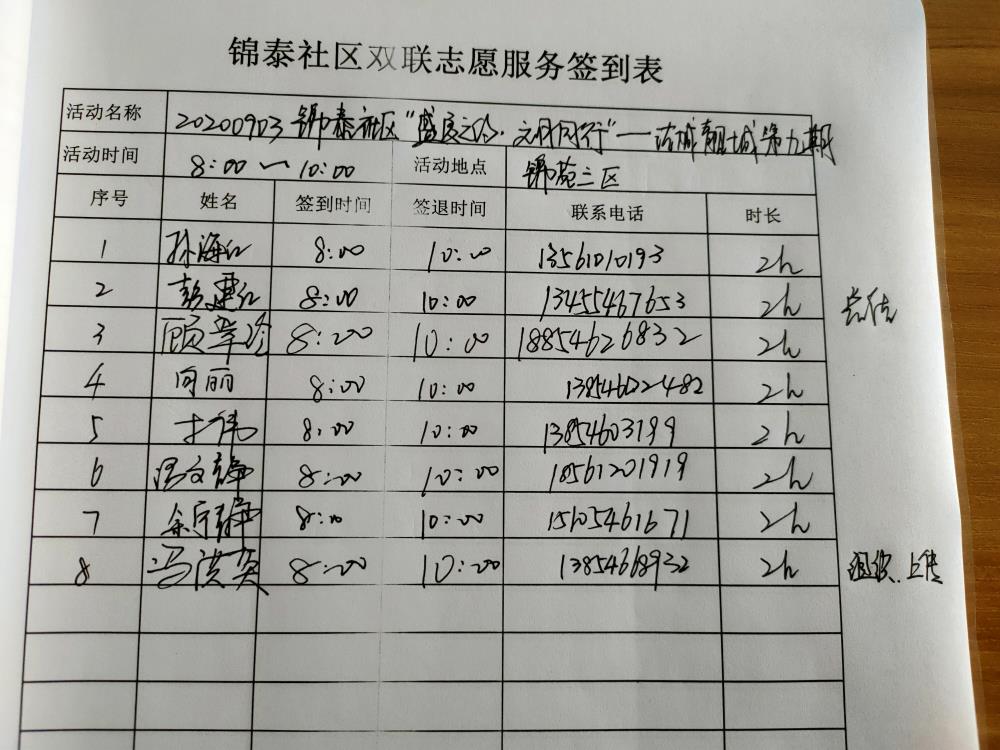 锦泰社区双联志愿服务签到表
活动名称 20200903 锦泰社区"盛度之约·文明同行"——洁城靓城第九期
活动时间 8:00 — 10:00 活动地点 锦苑三区
序号 姓名 签到时间 签退时间 联系电话 时长
1 孙海红 8:00 10:00 13561010193 2h
2 彭建红 8:00 10:00 13455467653 2h 总结
3 顾翠玲 8:00 10:00 18854626832 2h
4 向丽 8:00 10:00 138546022482 2h
5 8:00 10:00 13854603199 2h
6 文静 8:00 10:00 18561201919 2h
7 余宁静 8:00 10:00 15605461671 2h
8 冯洪英 8:00 10:00 13854668932 2h 组织、上传